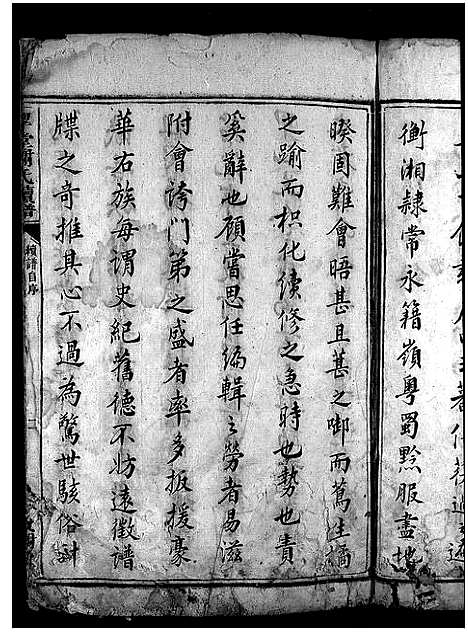 衡湘隸常永籍嶺粵蜀黔服盡地
暌固難會晤甚且甚之啣而蔦生橘
之踰而枳化續修之急時也勢也責
奚辭也顧嘗思任編輯之勞者易滋
附會誇門第之盛者率多扳援豪
華右族每謂史紀舊德不妨遠徵譜
牒之奇推其心不過為驚世駭俗計
堂 氏續譜
續譜自序